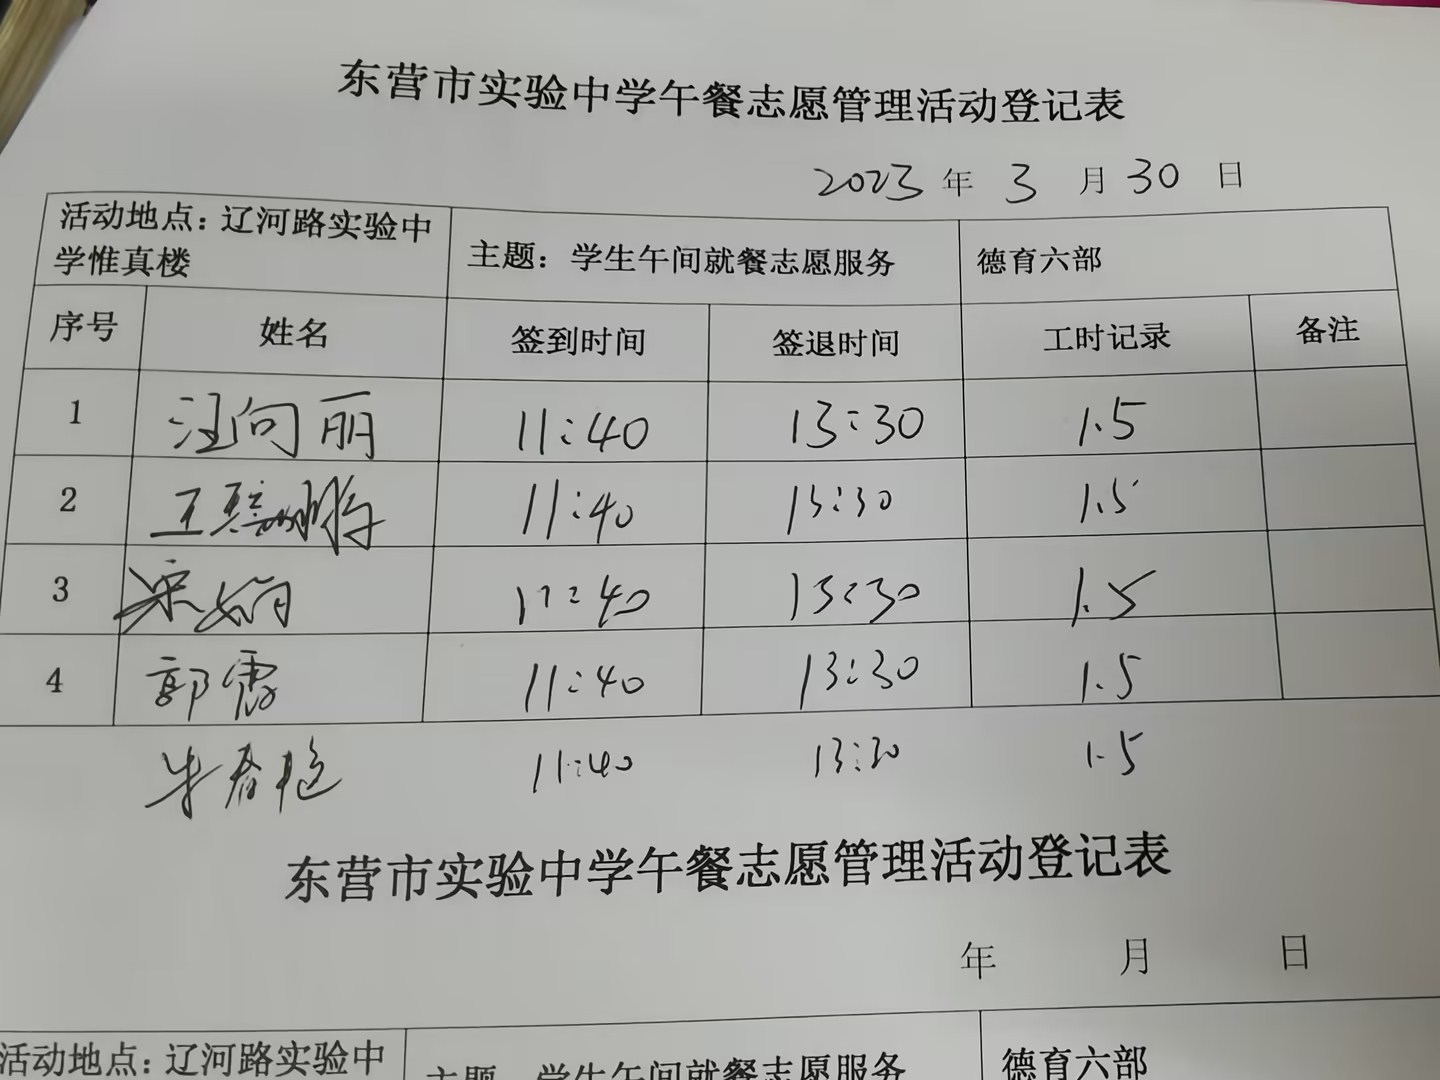 东营市实验中学午餐志愿管理活动登记表
2023 年 3 月 30 日
活动地点：辽河路实验中学惟真楼 主题：学生午间就餐志愿服务 德育六部
序号 姓名 签到时间 签退时间 工时记录 备注
1 汪向丽 11:40 13:30 1.5
2 王 11:40 13:30 1.5
3 11:40 13:30 1.5
4 郭霞 11:40 13:30 1.5
牛春艳 11:40 13:30 1.5
东营市实验中学午餐志愿管理活动登记表
年 月 日
活动地点：辽河路实验中 主题：学生午间就餐志愿服务 德育六部